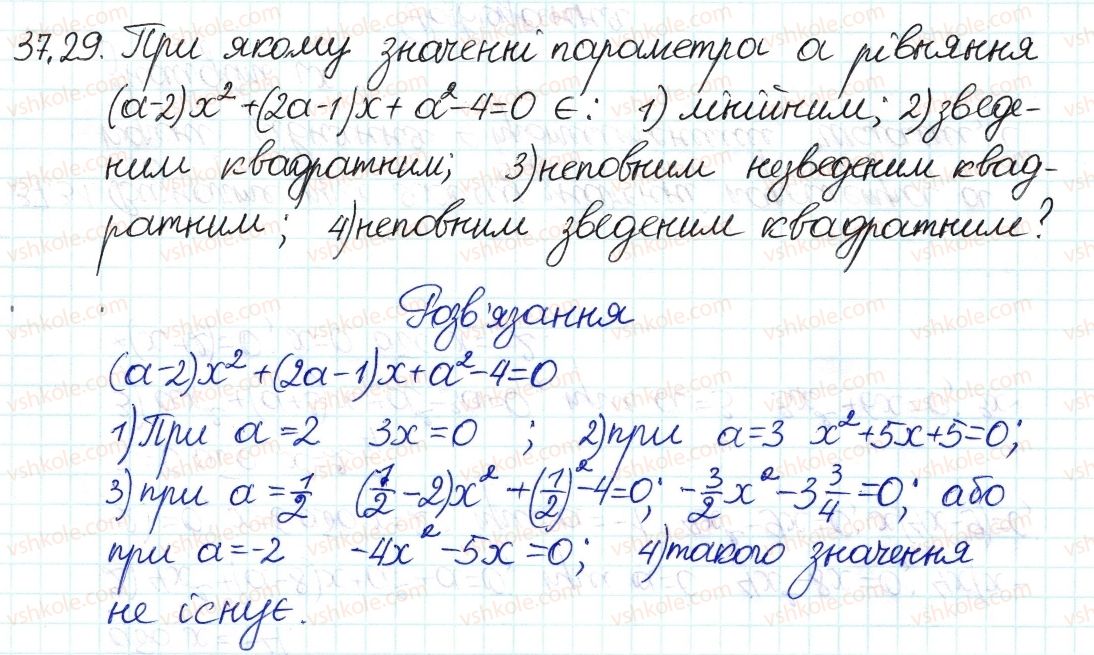 37.29. При якому значенні параметра а рівняння
(а-2)x²+(2а-1)x+а²-4=0 є: 1) лінійним; 2) зведе-
ним квадратним; 3) неповним незведеним квад-
ратним; 4) неповним зведеним квадратним?
Розв'язання
(а-2)x²+(2а-1)x+а²-4=0
1) При а=2 3x=0 ; 2) при а=3 x²+5x+5=0;
3) при а=1/2 (1/2-2)x²+(1/2)²-4=0; -3/2x²-3 3/4=0; або
при а=-2 -4x²-5x=0; 4) такого значення
не існує.